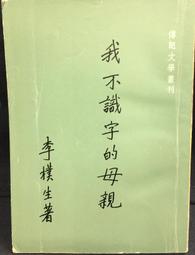 傳記文學叢刊
我不識字的母親
李樸生著